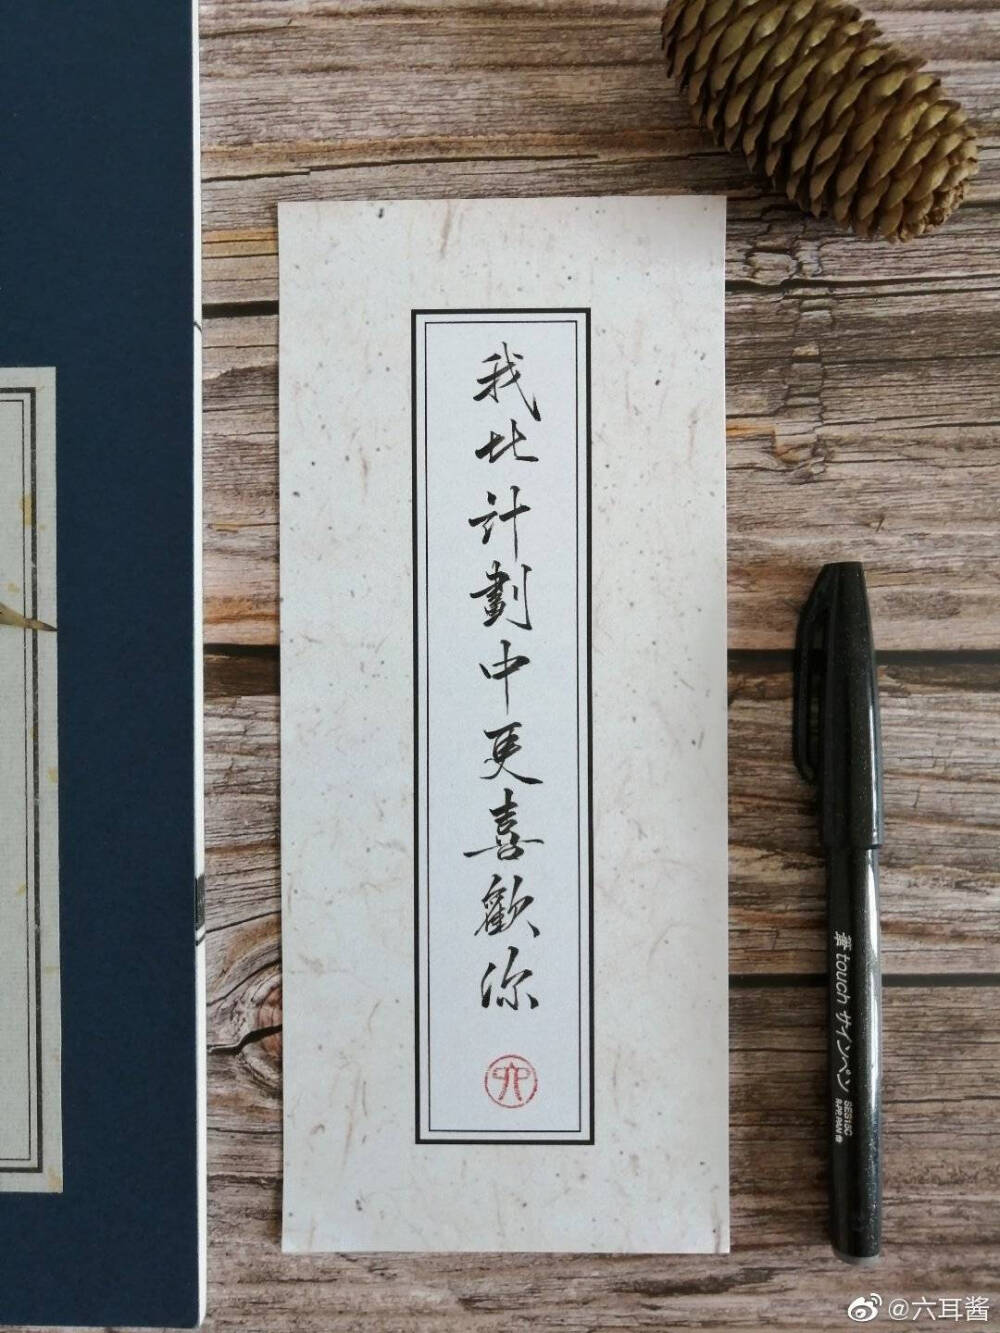 我比計劃中更喜歡你
筆touch サインペン
SES15C
@六耳酱